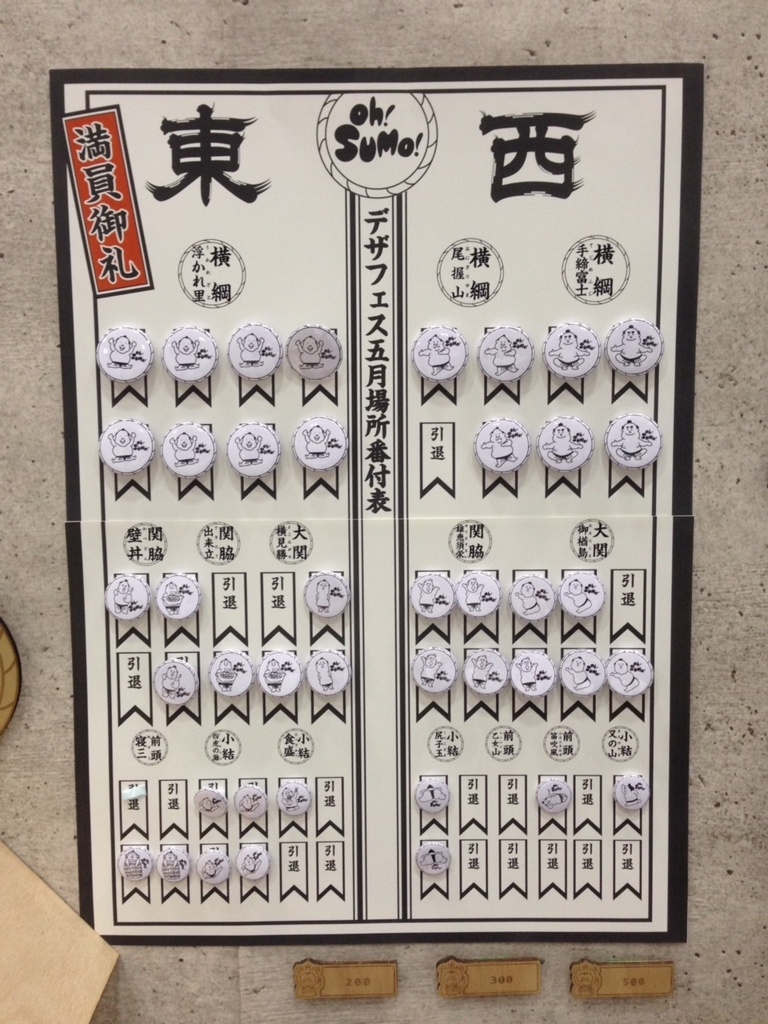 東
oh! SUMO!
西
満員御礼
デザフェス五月場所番付表
横綱
浮かれ里
横綱
尾握山
横綱
手締富士
引退
関脇
壁丼
関脇
出来立
大関
横見勝
関脇
大関
御楢島
引退
引退
引退
引退
前頭
寝三
小結
小結
食盛
小結
尻子玉
前頭
乙女山
前頭
笛吹風
小結
又の山
引退
引退
引退
引退
引退
引退
引退
引退
引退
引退
引退
引退
引退
200
300
500